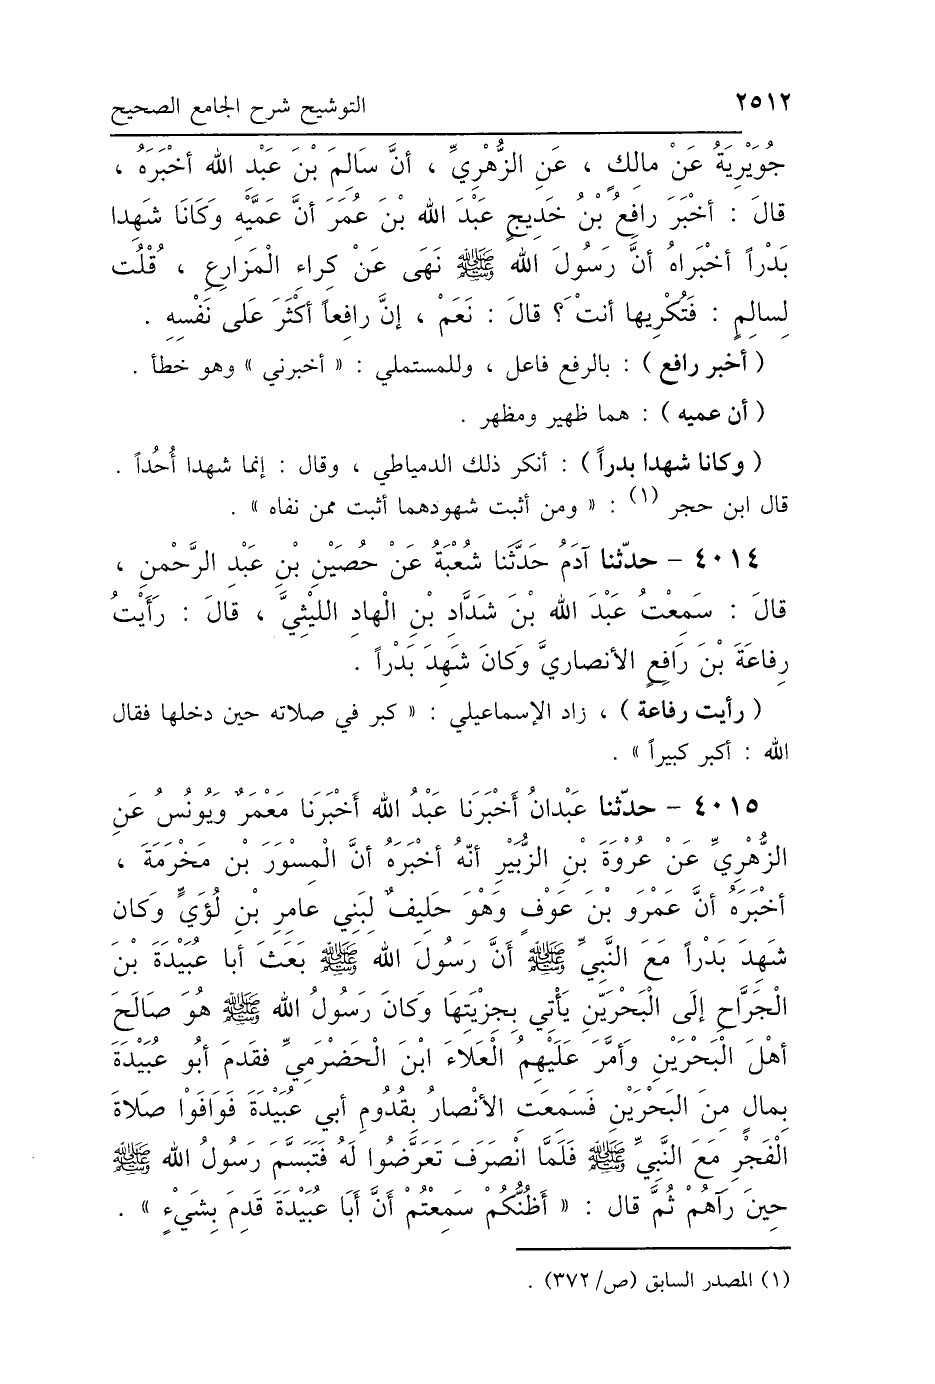 ٢٥١٢
التوشيح شرح الجامع الصحيح
جُوَيْرِيَةُ عَنْ مالِكٍ ، عَنِ الزُّهْرِيِّ ، أنَّ سَالِمَ بْنَ عَبْدِ الله أخْبَرَهُ ،
قالَ : أخْبَرَ رافِعُ بْنُ خَدِيجٍ عَبْدَ الله بْنَ عُمَرَ أنَّ عَمَّيْهِ وَكَانَا شَهِدا
بَدْراً أخْبَراهُ أنَّ رَسُولَ الله ﷺ نَهَى عَنْ كِراءِ الْمَزارِعِ ، قُلْتُ
لِسالِمٍ : فَتُكْرِيها أنتْ َ؟ قالَ : نَعَمْ ، إنَّ رافِعاً أكْثَرَ عَلى نَفْسِهِ .
( أخبر رافع ) : بالرفع فاعل ، وللمستملي : « أخبرني » وهو خطأ .
( أن عميه ) : هما ظهير ومظهر .
( وكانا شهدا بدراً ) : أنكر ذلك الدمياطي ، وقال : إنما شهدا أُحُداً .
قال ابن حجر (١) : « ومن أثبت شهودهما أثبت ممن نفاه » .
٤٠١٤ - حدّثنا آدَمُ حَدَّثَنا شُعْبَةُ عَنْ حُصَيْنِ بْنِ عَبْدِ الرَّحْمنِ ،
قالَ : سَمِعْتُ عَبْدَ الله بْنَ شَدَّادِ بْنِ الْهادِ اللَّيْثِيَّ ، قالَ : رَأيْتُ
رِفاعَةَ بْنَ رَافِعٍ الأنصارِيَّ وَكَانَ شَهِدَ بَدْراً .
( رأيت رفاعة ) ، زاد الإسماعيلي : « كبر في صلاته حين دخلها فقال
الله : أكبر كبيراً » .
٤٠١٥ - حدّثنا عَبْدانُ أَخْبَرَنَا عَبْدُ الله أَخْبَرَنَا مَعْمَرٌ وَيُونُسُ عَنِ
الزُّهْرِيِّ عَنْ عُرْوَةَ بْنِ الزُّبَيْرِ أنّهُ أخْبَرَهُ أنَّ الْمِسْوَرَ بْن مَخْرَمَةَ ،
أخْبَرَهُ أنَّ عَمْرَو بْنَ عَوْفٍ وَهْوَ حَلِيفٌ لِبَنِي عامِرِ بْنِ لُؤَيٍّ وَكان
شَهِدَ بَدْراً مَعَ النَّبِيِّ ﷺ أنَّ رَسُولَ الله ﷺ بَعَثَ أبا عُبَيْدَةَ بْنَ
الْجَرَّاحِ إلَى الْبَحْرَيّنِ يَأْتِي بِجِزْيَتِهَا وَكَانَ رَسُولُ الله ﷺ هُوَ صَالَحَ
أهْلَ الْبَحْرَيْنِ وَأمَّرَ عَلَيْهِمُ الْعَلاءَ ابْنَ الْحَضْرَمِيِّ فقَدِمَ أبُو عُبَيْدَةَ
بِمالٍ مِنَ البَحْرَيْنِ فَسَمِعَتِ الأنْصارُ بِقُدُومِ أبي عُبَيْدَةَ فَوَافَوْا صَلاةَ
الْفَجْرِ مَعَ النَّبِيِّ ﷺ فَلَمَّا انْصَرَفَ تَعَرَّضُوا لَهُ فَتَبَسَّمَ رَسُولُ الله ﷺ
حِينَ رَآهُمْ ثُمَّ قال : « أَظُنُّكُمْ سَمِعْتُمْ أنَّ أَبَا عُبَيْدَةَ قَدِمَ بِشَيْءٍ » .
(١) المصدر السابق (ص/٣٧٢) .